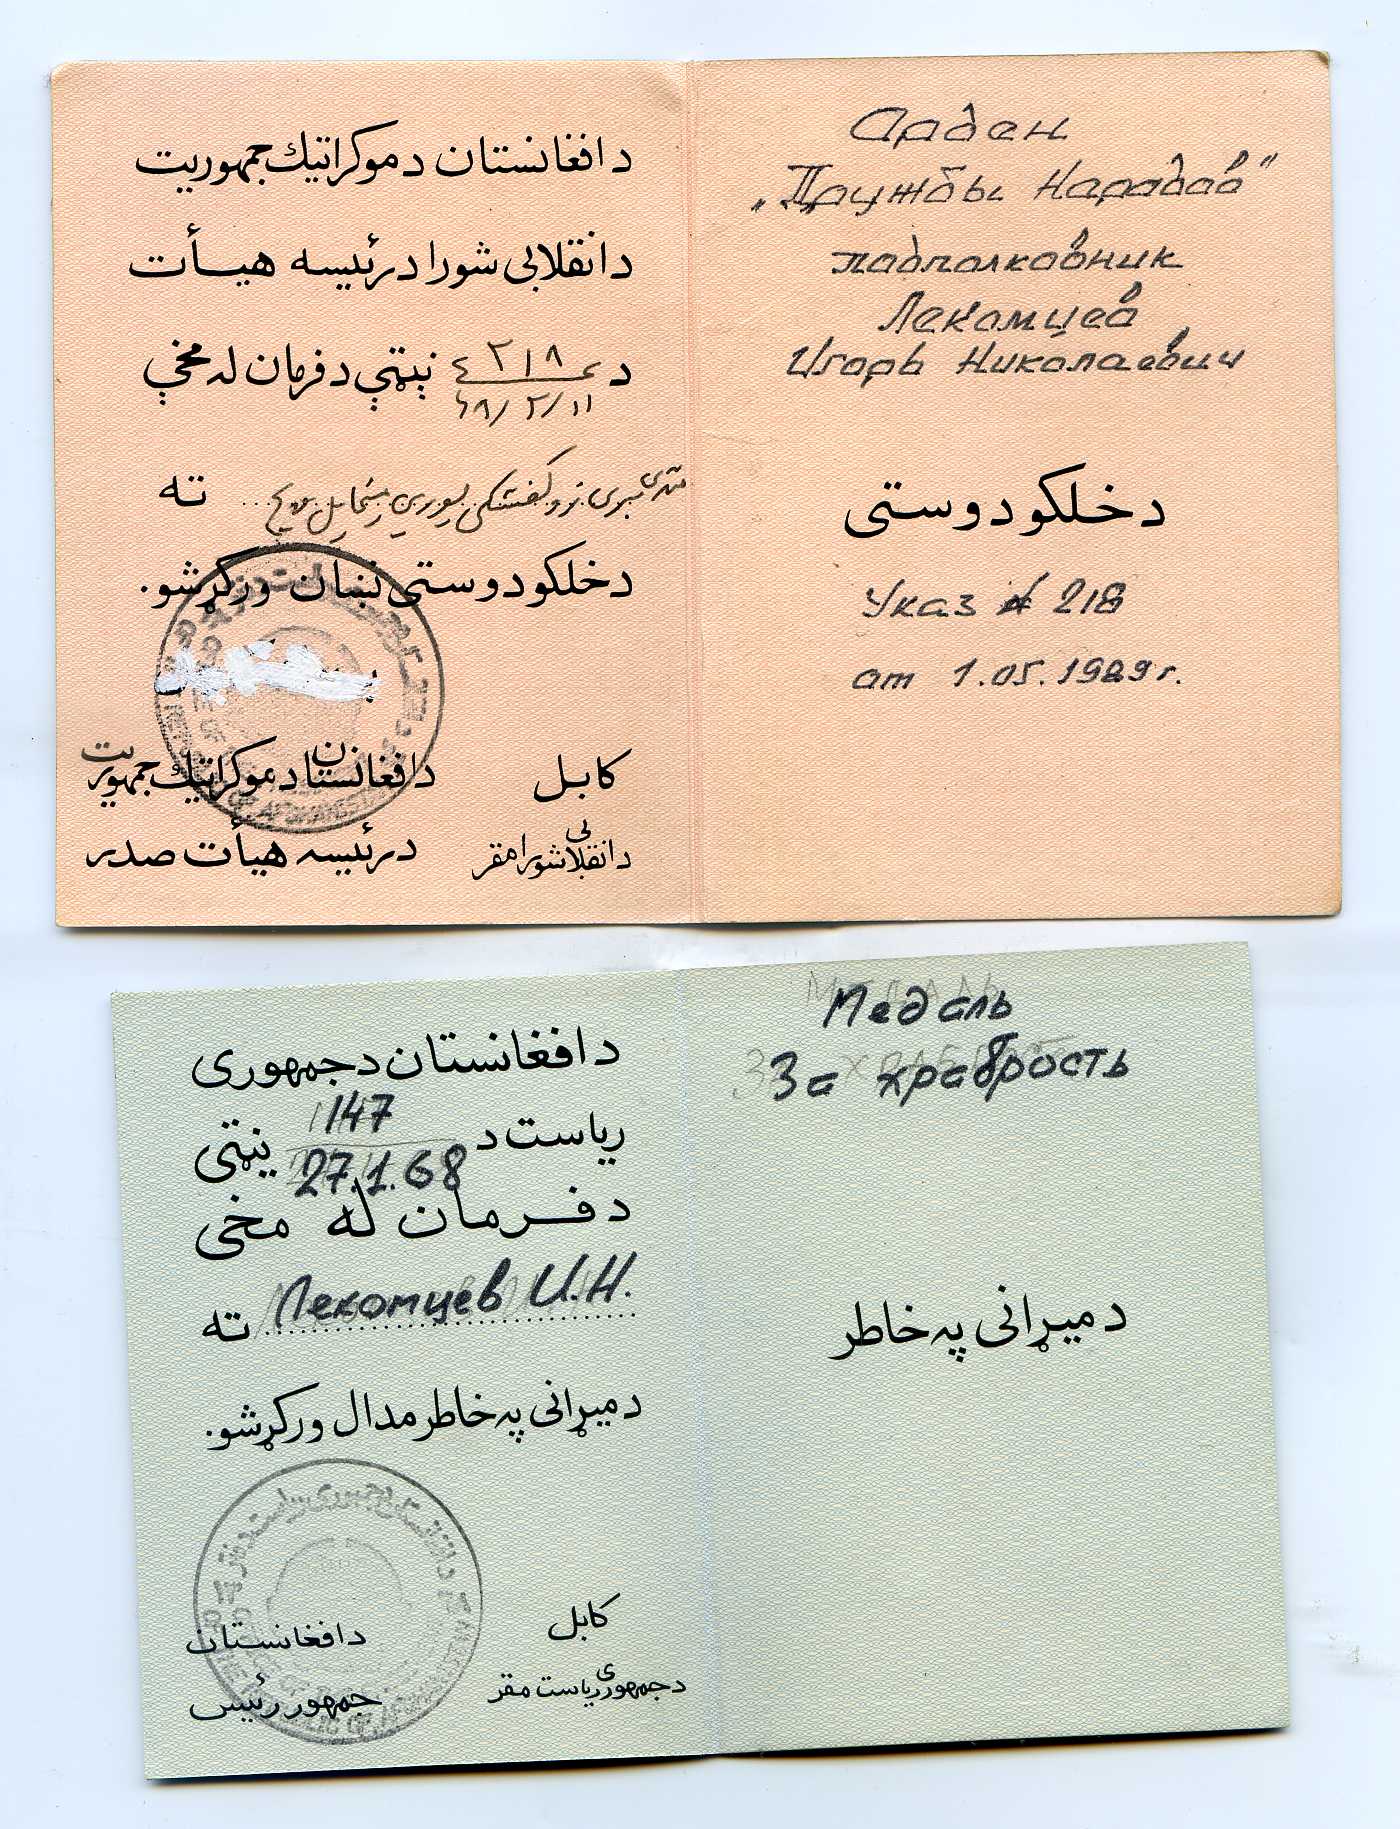 د افغانستان د موکراتیك جمهوریت
د انقلابی شورا د رئیسه هیـأت
د ٢١٨ نېټې د فرمان له مخې
٦٨/٢/١١
ته
د خلکو د وستی نښان ورکړ شو.
کابل
د انقلابی شورا مقر
د افغانستان د موکراتیك جمهوریت
د رئیسه هیأت صدر
Орден
„Дружбы Народов"
подполковник
Лекомцев
Игорь Николаевич
د خلکو د وستی
Указ № 218
от 1.05.1989г.
د افغانستان د جمهوری
ریاست د 147 نېټی
27.1.68
د فـرمان له مخی
Лекомцев И.Н. ته
د میړانی په خاطر مدال ورکړ شو.
کابل
د جمهوری ریاست مقر
د افغانستان
جمهور رئیس
Медаль
За храбрость
د میړانی په خاطر